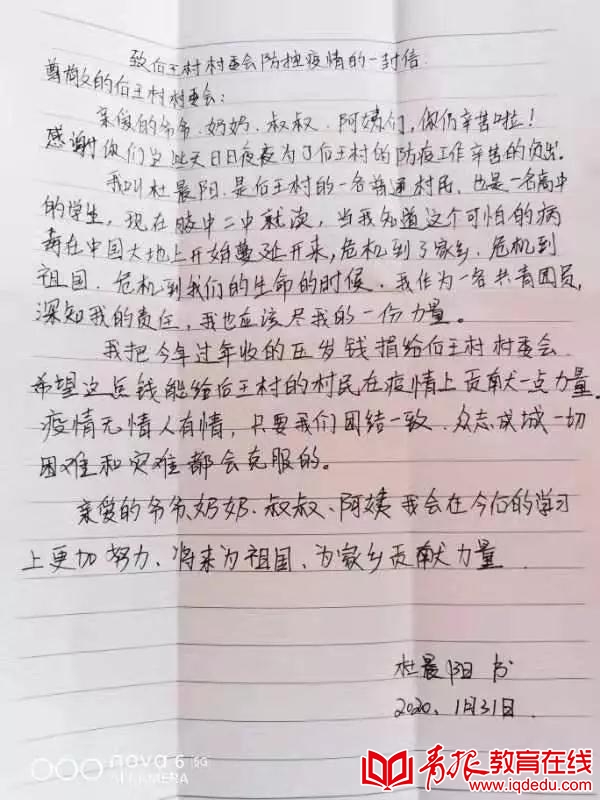 致后王村村委会防控疫情的一封信.
尊敬的后王村村委会:
亲爱的爷爷、奶奶、叔叔、阿姨们,你们辛苦啦!
感谢你们当此天日日夜夜为了后王村的防疫工作辛苦的付出.
我叫杜晨阳.是后王村的一名普通村民,也是一名高中
的学生,现在胶中二中就读,当我知道这个可怕的病
毒在中国大地上开始蔓延开来,危机到了家乡.危机到
祖国.危机到我们的生命的时候.我作为一名共青团员,
深知我的责任,我也应该尽我的一份力量。
我把今年过年收的压岁钱捐给后王村村委会.
希望这点钱能给后王村的村民在疫情上贡献一点力量.
疫情无情人有情,只要我们团结一致.众志成城一切
困难和灾难都会克服的。
亲爱的爷爷、奶奶、叔叔、阿姨我会在今后的学习
上更加努力、将来为祖国、为家乡贡献力量.
杜晨阳 书
2020、1月31日.
nova 6 5G
AI CAMERA
青报教育在线
www.iqdedu.com